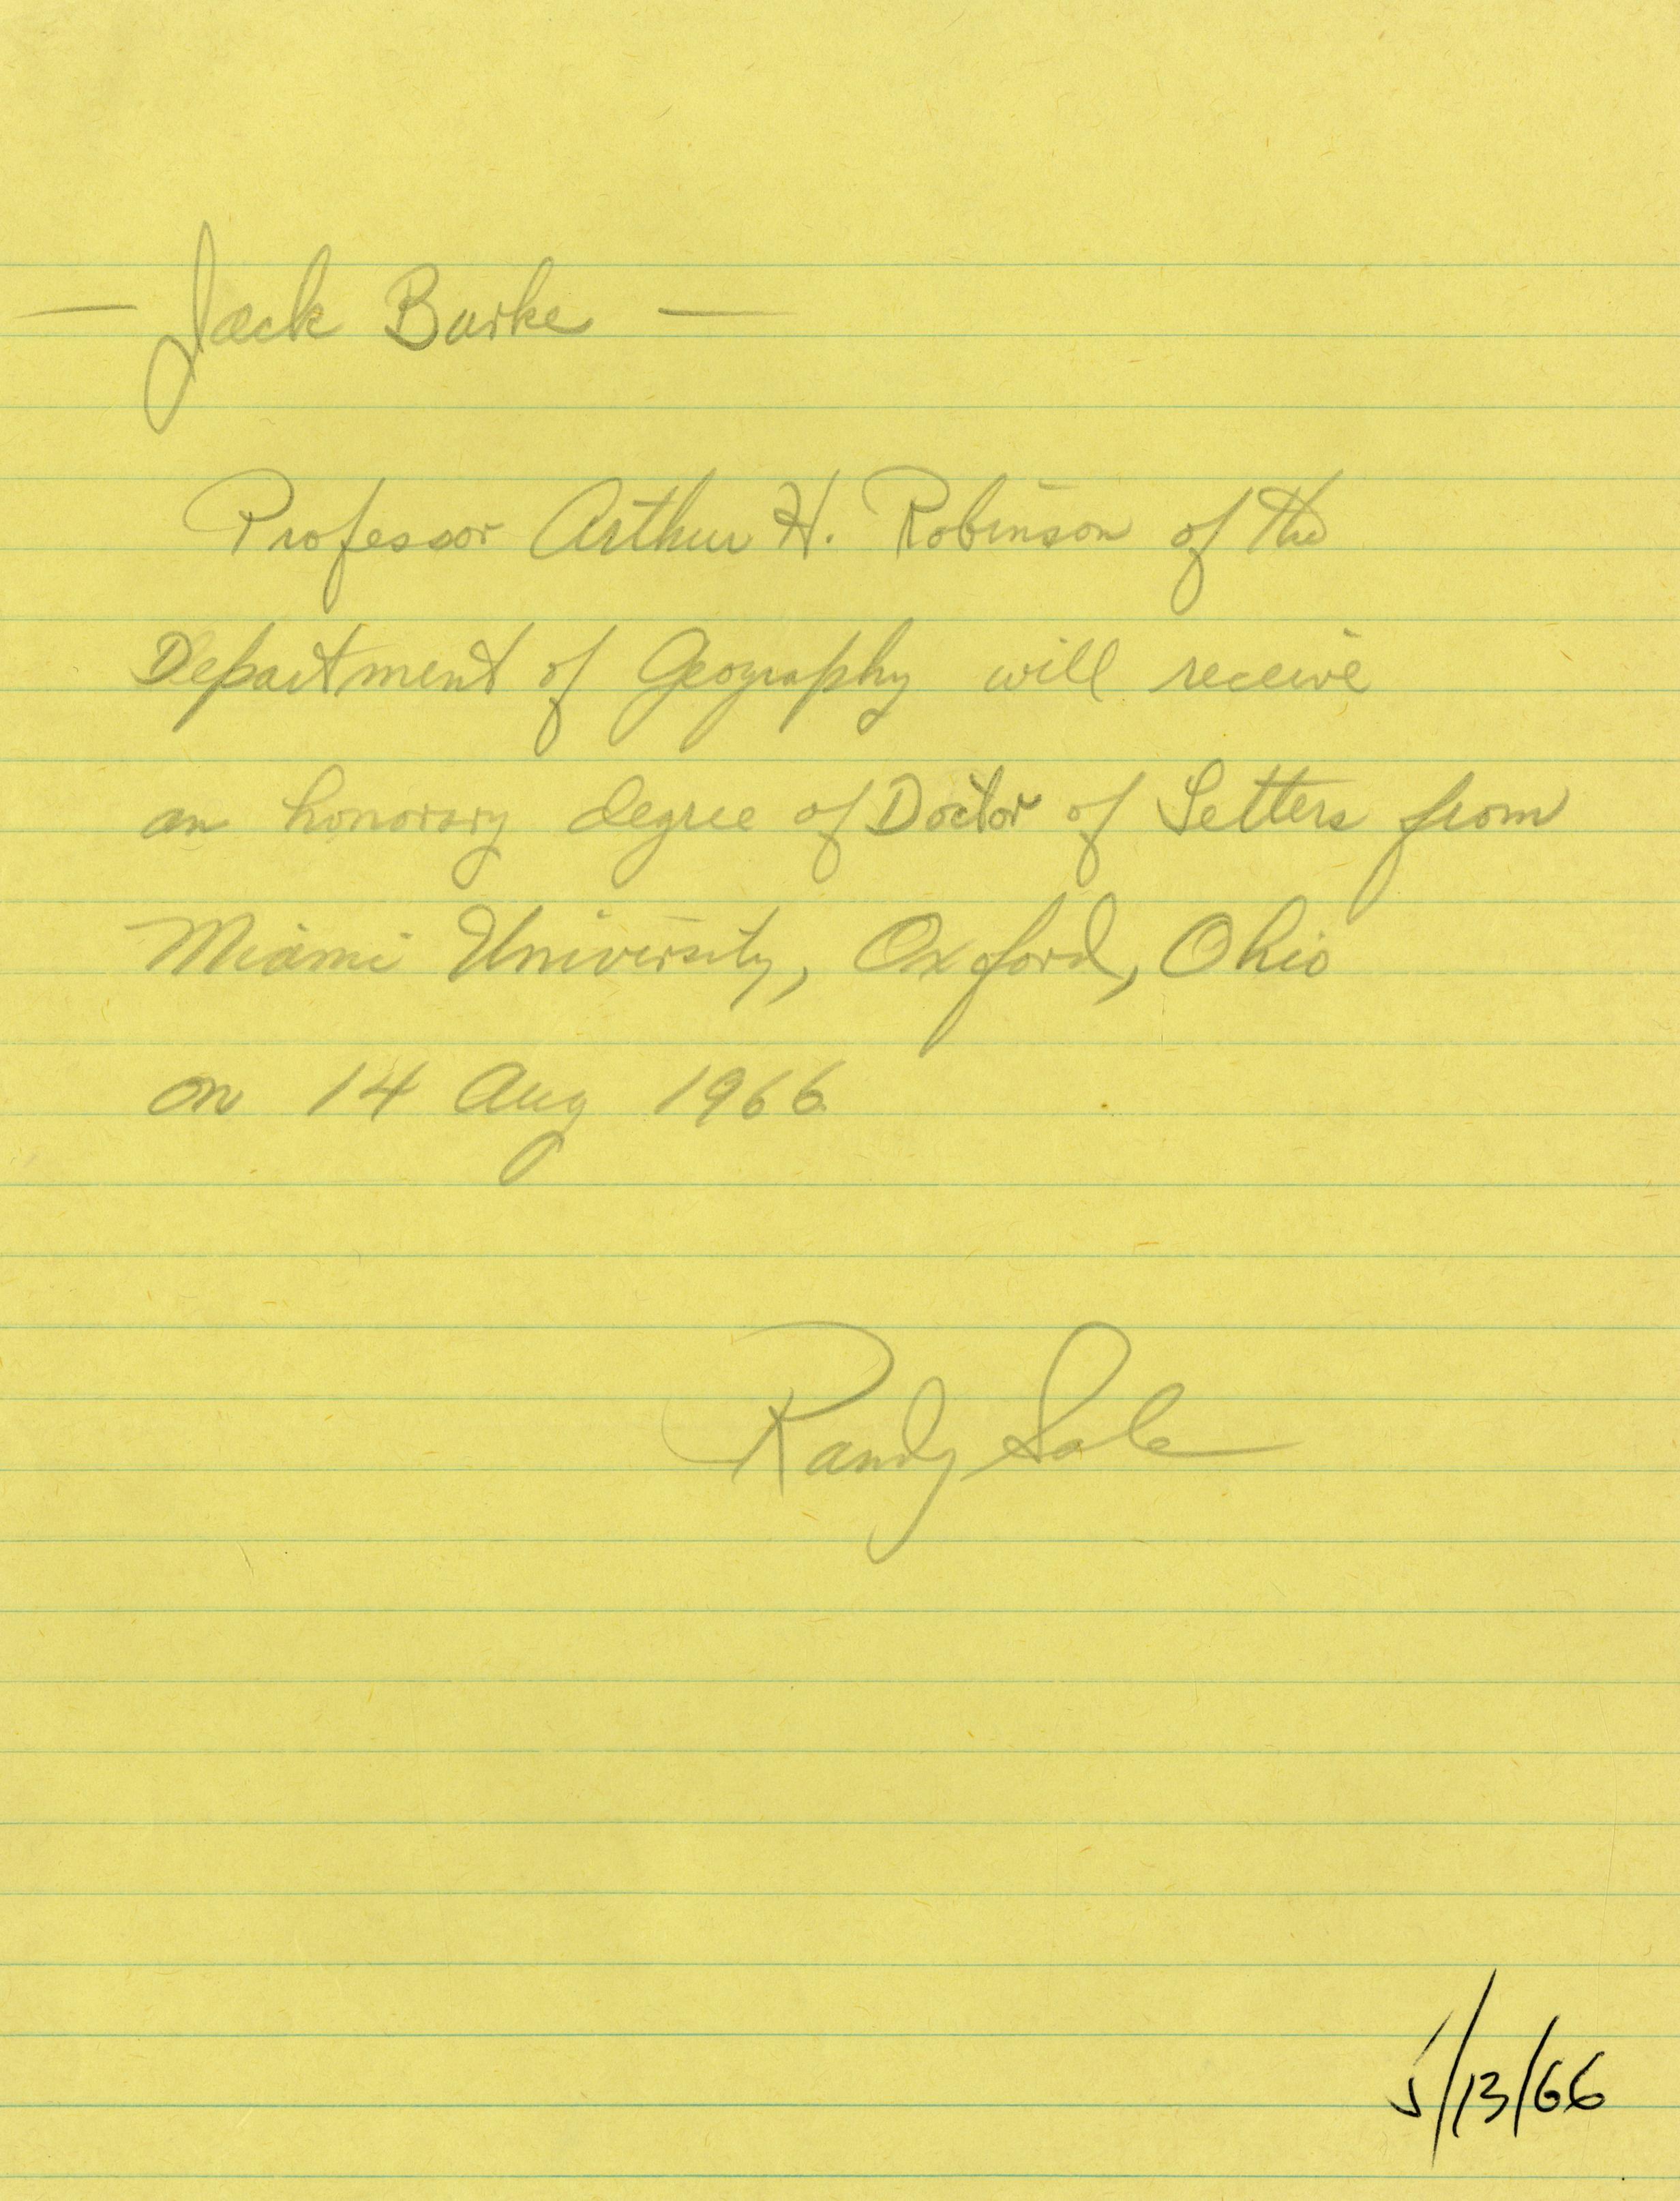 — Jack Burke —
Professor Arthur H. Robinson of the
Department of Geography will receive
an honorary degree of Doctor of Letters from
Miami University, Oxford, Ohio
on 14 Aug 1966
Randy Sale
5/13/66